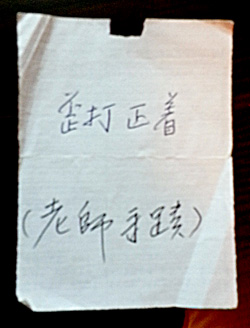 歪打正着
(老師手蹟)